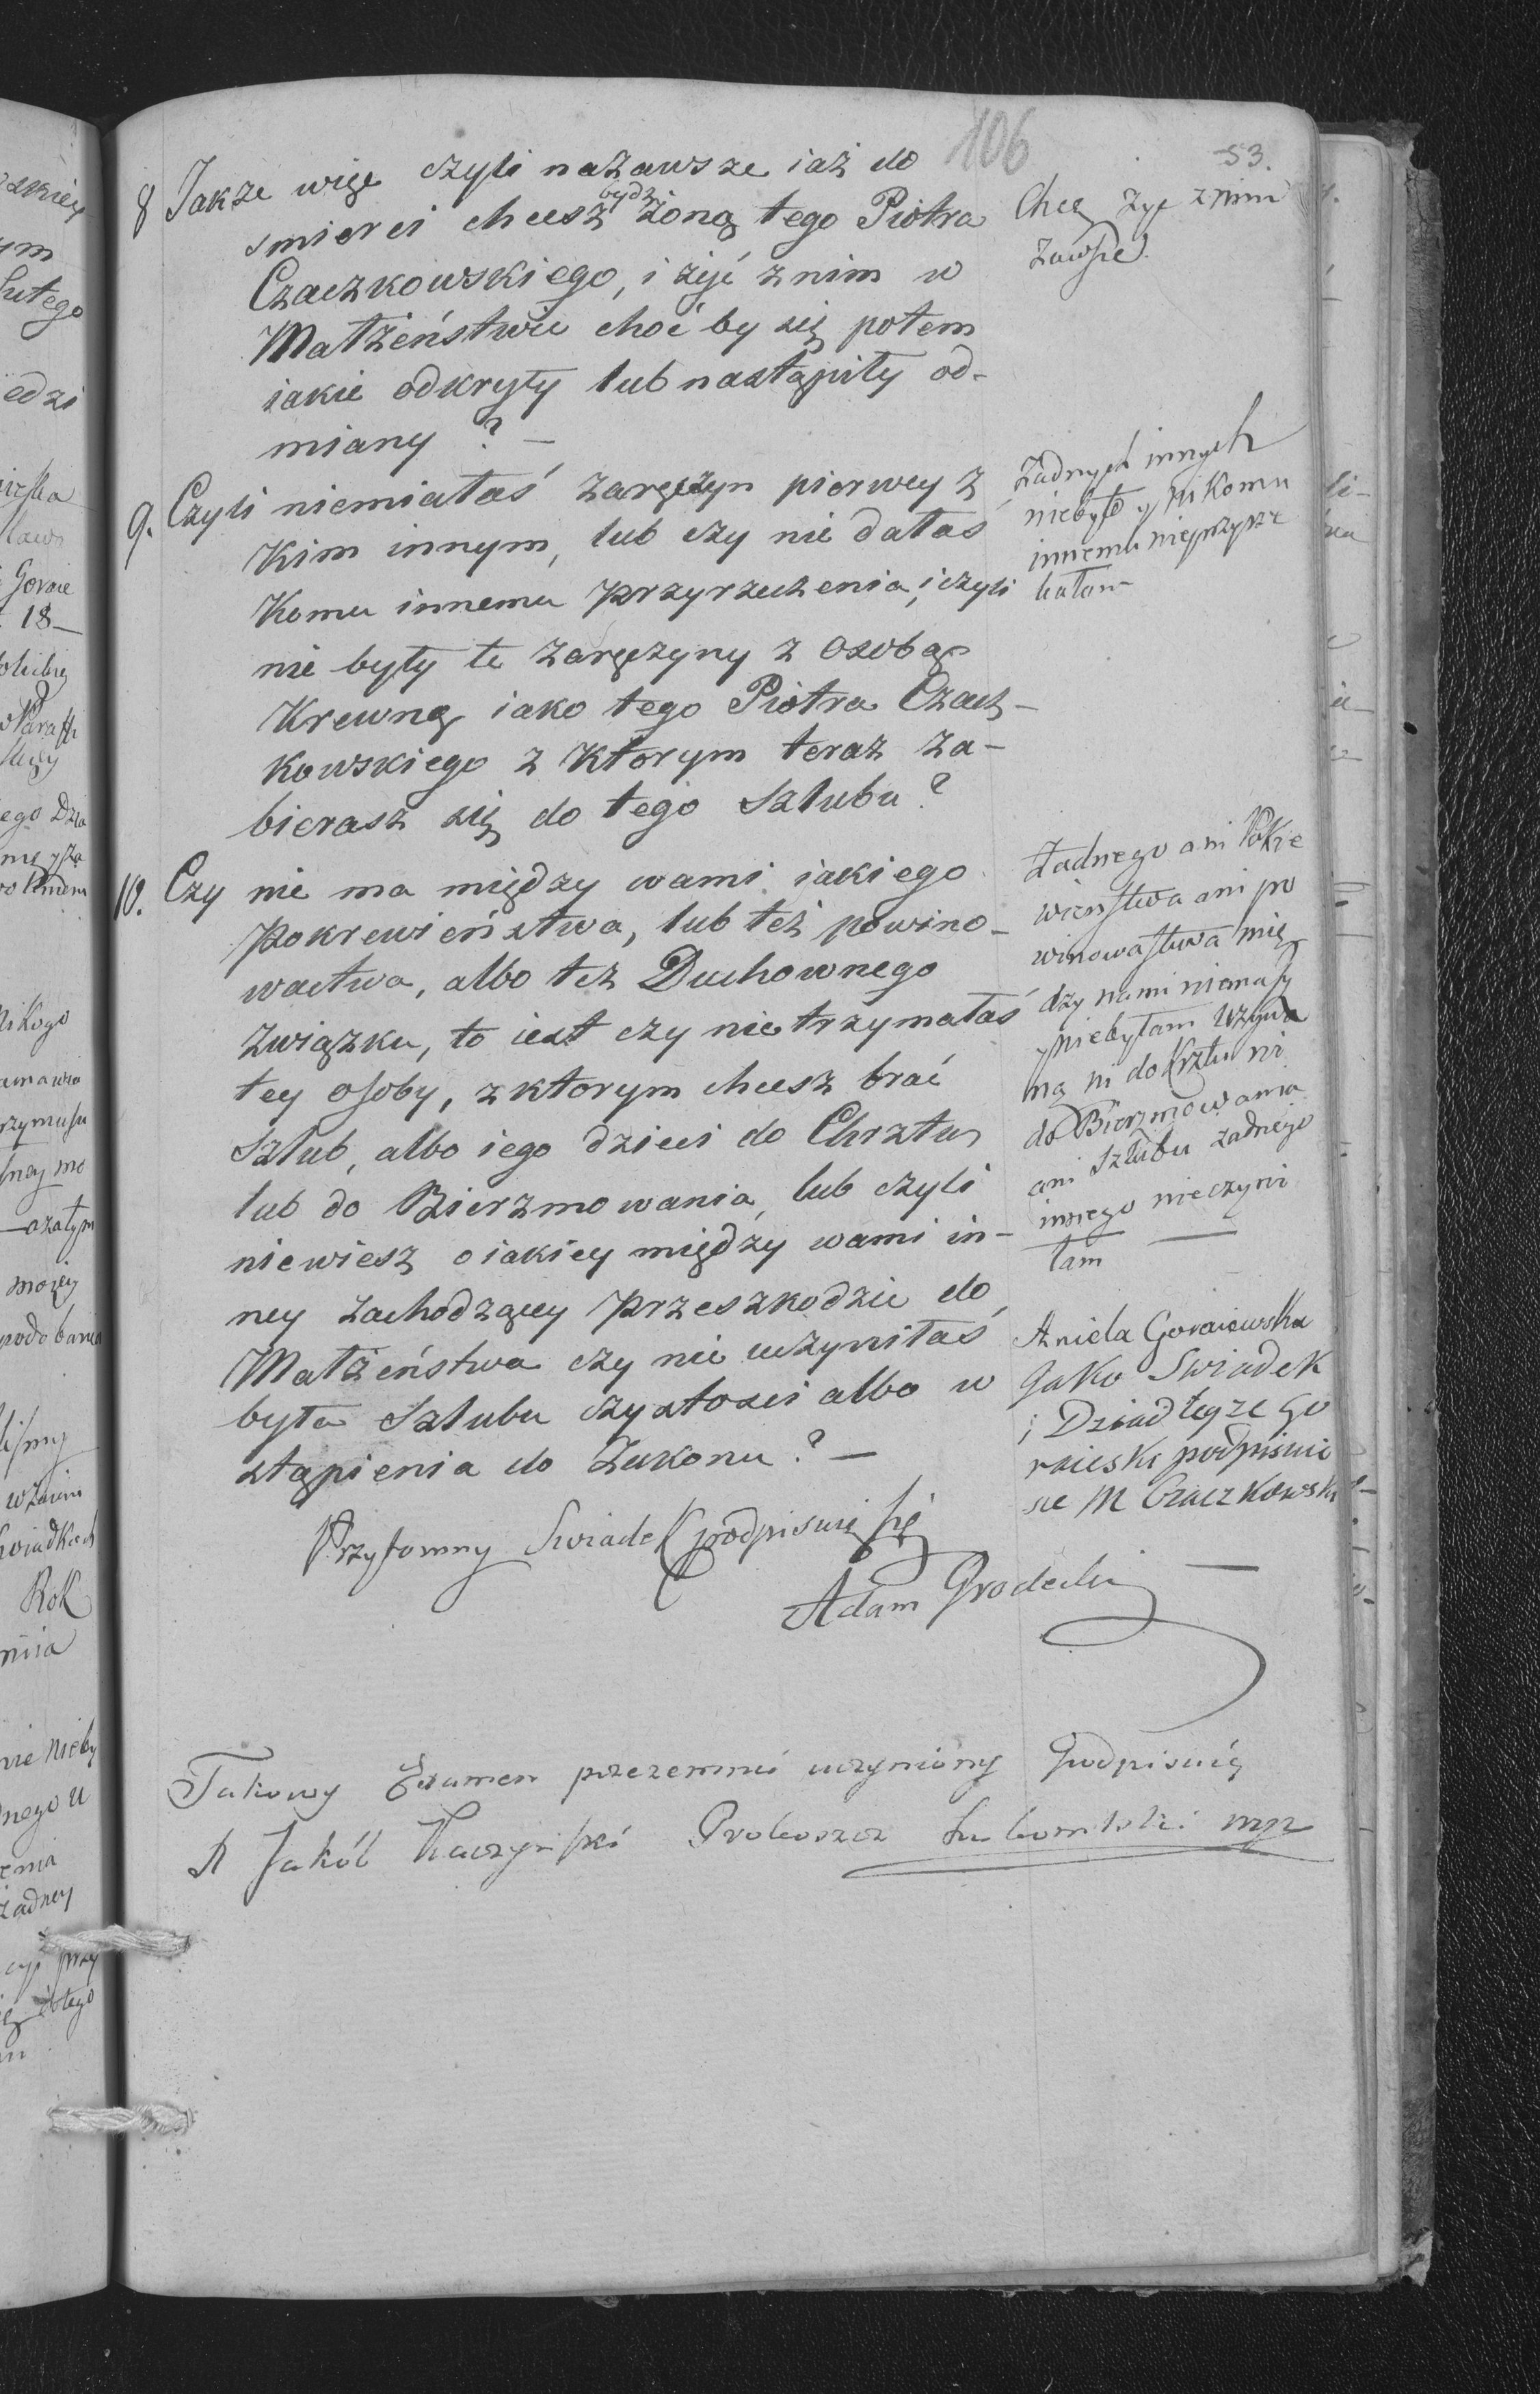 106
53.
8 Jakże więc czyli nazawsze iaż do
smierci chcesz bydz żoną tego Piotra
Czaczkowskiego, i żyć znim w
Małżeństwie choć by się potem
iakie odkryły lub nastąpiły od-
miany? —
Chcę żyć z nim
zawsze
9. Czyli niemiałaś zaręczyn pierwey z
Kim innym, lub czy nie dałaś
Komu innemu przyrzeczenia, i czyli
nie były te zaręczyny z osobą
Krewną iako tego Piotra Czacz-
kowskiego z Ktorym teraz za-
bierasz się do tego Szlubu?
Żadnych innych
niebyło y nikomu
innemu nieprzyrze
kałam
10. Czy nie ma między wami iakiego
Pokrewieństwa, lub też powino-
wactwa, albo też Duchownego
Związku, to iest czy nie trzymałaś
tey osoby, z ktorym chcesz brać
Szlub, albo iego dzieci do Chrztu
lub do Bierzmowania, lub czyli
niewiesz o iakiey między wami in-
ney zachodzącey Przeszkodzie do
Małżeństwa czy nie uczyniłaś
była Szlubu czystości albo w
stąpienia do Zakonu? —
Żadnego ani Pokre
wienstwa ani po
winowastwa mię
dzy nami niemasz
y niebyłam wzywa
ną ni do Krztu ni
do Bierzmowania
ani Szlubu żadnego
innego nieczyni
łam
Aniela Goraiewska
Jako Swiadek
i Dziad teyze Go
raieski podpisuie
sie M Czaczkowski
Przytomny Swiadek podpisuię się
Adam Grodecki
Takowy Examen przezemnie uczyniony Podpisuię
X Jakób Kaczyński Proboszcz mp